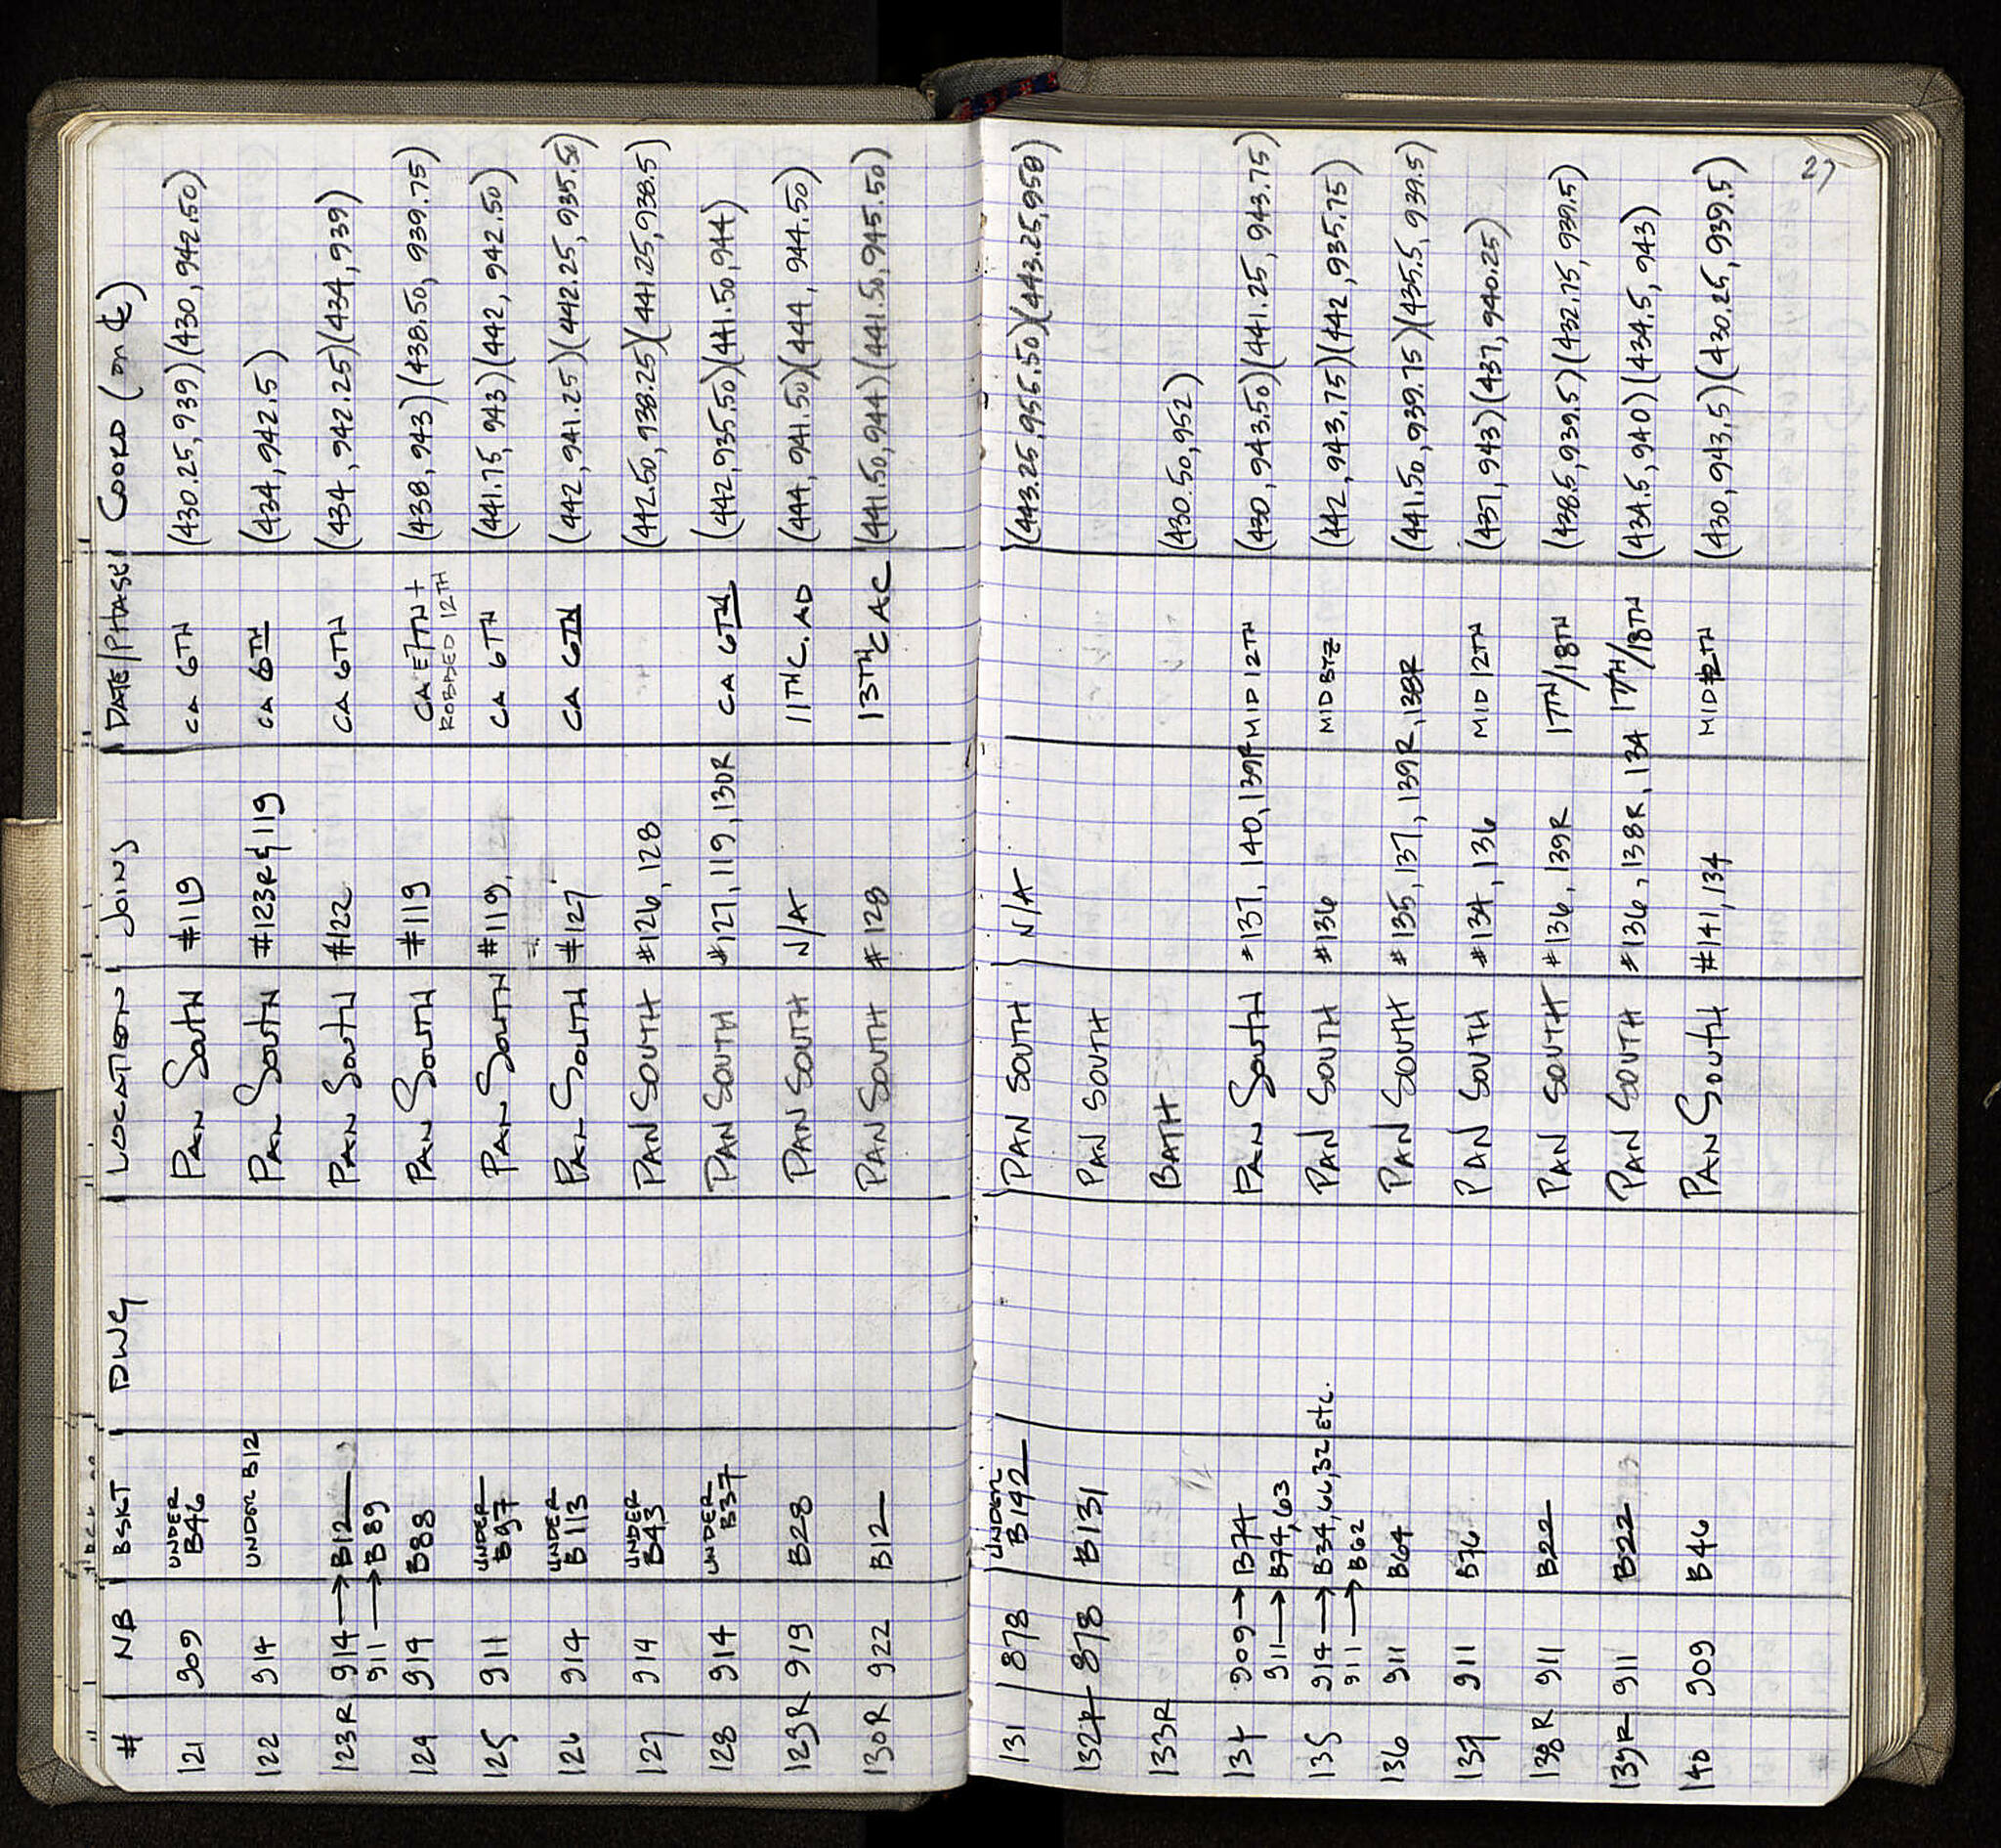 # NB BSKT DWG LOCATION JOINS DATE/PHASE COORD (on ℄)
121 909 UNDER B46 PAN SOUTH #119 CA 6TH (430.25, 939)(430, 942.50)
122 914 UNDER B12 PAN SOUTH #123R & 119 CA 6TH (434, 942.5)
123R 914 → B12 PAN SOUTH #122 CA 6TH (434, 942.25)(434, 939)
911 → B89
124 914 B88 PAN SOUTH #119 CA E7TH + (438, 943)(438.50, 939.75)
ROBBED 12TH
125 911 UNDER B97 PAN SOUTH #119, CA 6TH (441.75, 943)(442, 942.50)
126 914 UNDER B113 PAN SOUTH #127 CA 6TH (442, 941.25)(442.25, 935.50)
127 914 UNDER B43 PAN SOUTH #126, 128 (442.50, 938.25)(441.25, 938.5)
128 914 UNDER B37 PAN SOUTH #127, 119, 130R CA 6TH (442, 935.50)(441.50, 944)
129R 919 B28 PAN SOUTH N/A 11TH C. AD (444, 941.50)(444, 944.50)
130R 922 B12 PAN SOUTH #128 13TH C AC (441.50, 944)(441.50, 945.50)
27
131 878 UNDER B142 PAN SOUTH N/A (443.25, 956.50)(443.25, 958)
132R 878 B131 PAN SOUTH
133R BATH (430.50, 952)
134 909 → B74 PAN SOUTH #137, 140, 139R MID 12TH (430, 943.50)(441.25, 943.75)
911 → B74, 63
135 914 → B34, 66, 32 Etc. PAN SOUTH #136 MID BTZ (442, 943.75)(442, 935.75)
911 → B62
136 911 B64 PAN SOUTH #135, 137, 139R, 138R (441.50, 939.75)(435.5, 939.5)
137 911 B76 PAN SOUTH #134, 136 MID 12TH (437, 943)(437, 940.25)
138R 911 B22 PAN SOUTH #136, 139R 17TH/18TH (438.5, 939.5)(432.75, 939.5)
139R 911 B22 PAN SOUTH #136, 138R, 134 17TH/18TH (434.5, 940)(434.5, 943)
140 909 B46 PAN SOUTH #141, 134 MID 12TH (430, 943.5)(430.25, 939.5)